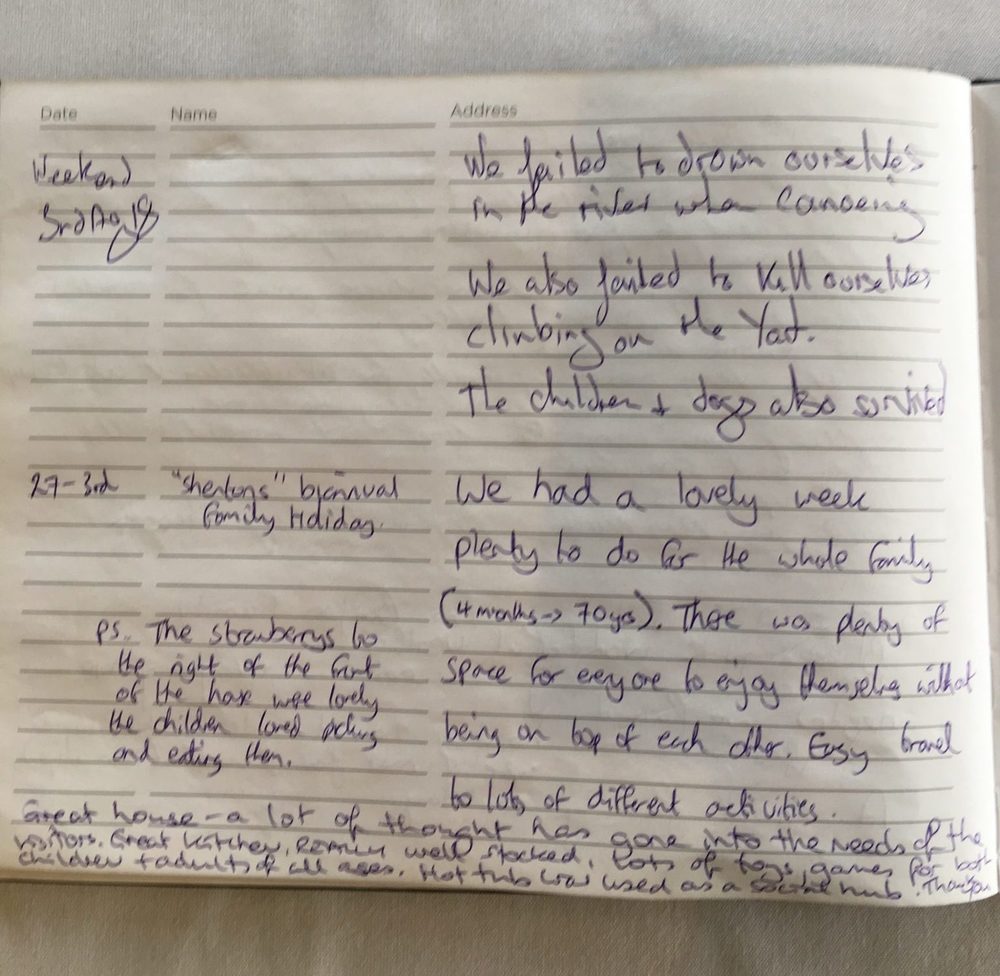 Date Name Address
Weekend
3rd Aug 18
We failed to drown ourselves
in the river when Canoeing
We also failed to kill ourselves
climbing on the Yat.
The children + dogs also survived
27-3rd
"Shentons" biannual
family Holiday.
We had a lovely week
plenty to do for the whole family
(4 months -> 70yrs). There was plenty of
space for everyone to enjoy themselves without
being on top of each other. Easy travel
to lots of different activities.
PS. The strawberrys to
the right of the front
of the house were lovely
the children loved picking
and eating them.
Great house - a lot of thought has gone into the needs of the
visitors. Great kitchen, really well stocked, lots of toys, games for both
children + adults of all ages. Hot tub was used as a social hub. Thankyou